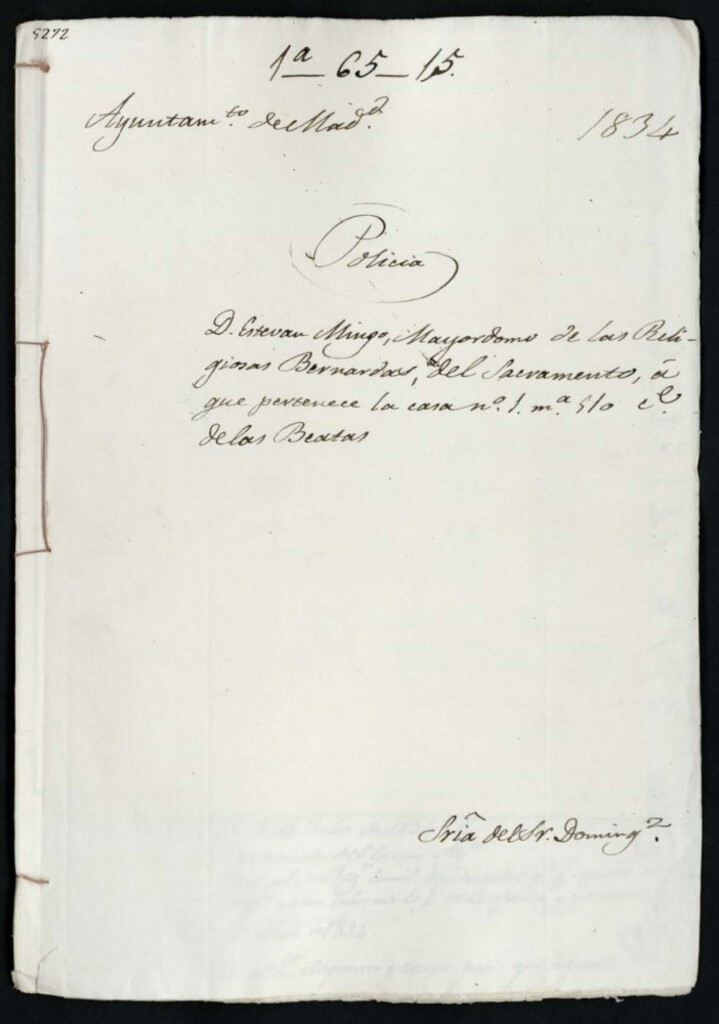 5272
1ª-65-15.
Ayuntam.to de Mad.d
1834
Policia
D. Estevan Mingo, Mayordomo de las Reli-
giosas Bernardas, del Sacramento, á
que pertenece la casa nº. 1. mª. 510 c.e
de las Beatas
Sria del Sr. Doming.z